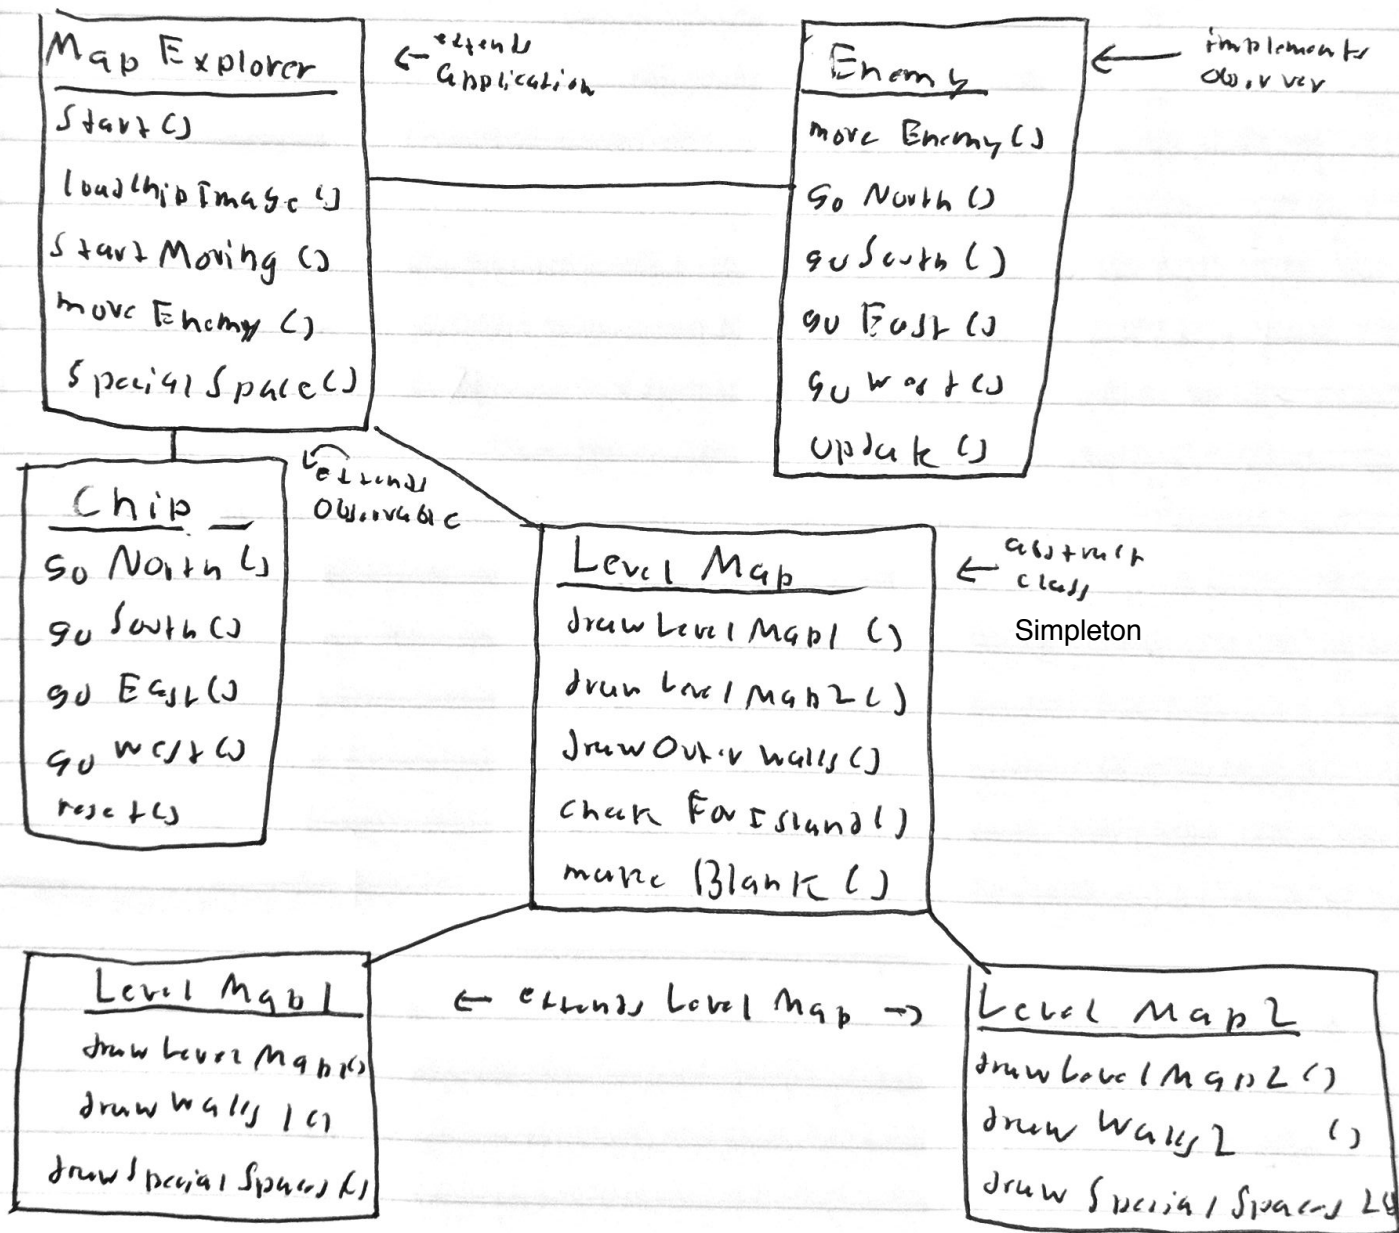 Map Explorer
start()
loadChipImage()
startMoving()
moveEnemy()
specialSpace()
← extends
application
Enemy
moveEnemy()
goNorth()
goSouth()
goEast()
goWest()
update()
← implements
observer
Chip
goNorth()
goSouth()
goEast()
goWest()
reset()
extends
Observable
Level Map
drawLevelMap1()
drawLevelMap2()
drawOuterWalls()
checkForIsland()
makeBlank()
← abstract
class
Simpleton
Level Map1
drawLevelMap1()
drawWalls1()
drawSpecialSpaces()
← extends Level Map →
Level Map2
drawLevelMap2()
drawWalls2()
drawSpecialSpaces2()